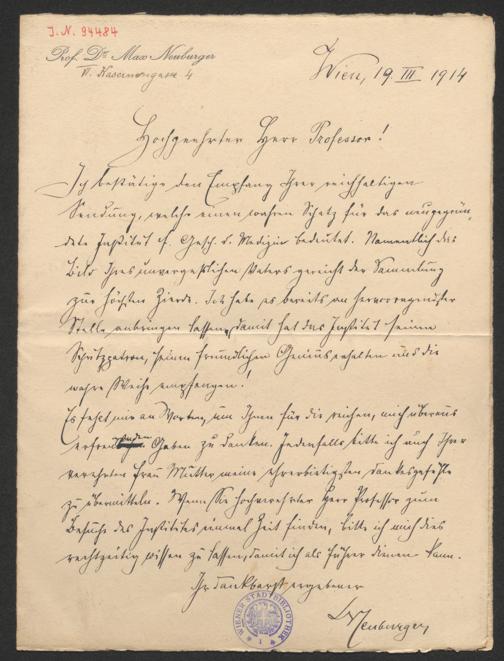 J. N. 94484
Prof. Dr. Max Neuburger
VI. Kasernengasse 4
Wien, 19 III 1914
Hochgeehrter Herr Professor!
Ich bestätige den Empfang Ihrer reichhaltigen
Sendung, welche einen wahren Schatz für das neugegrün-
dete Institut f. Gesch. d. Medizin bedeutet. Namentlich das
Bild Ihres unvergeßlichen Vaters gereicht der Sammlung
zur höchsten Zierde. Ich habe es bereits an hervorragendster
Stelle anbringen lassen, damit hat das Institut seinen
Schutzpatron, seinen freundlichen Genius erhalten und die
wahre Weihe empfangen.
Es fehlt mir an Worten, um Ihnen für die reichen, mich überaus
erfreuenden Gaben zu danken. Jedenfalls bitte ich auch Ihrer
verehrten Frau Mutter meine ehrerbietigsten Dankesgefühle
zu übermitteln. Wenn Sie hochverehrter Herr Professor zum
Besuche des Institutes einmal Zeit finden, bitte ich mich dies
rechtzeitig wissen zu lassen, damit ich als Führer dienen kann.
Ihr dankbarst ergebener
Neuburger
WIENER STADTBIBLIOTHEK